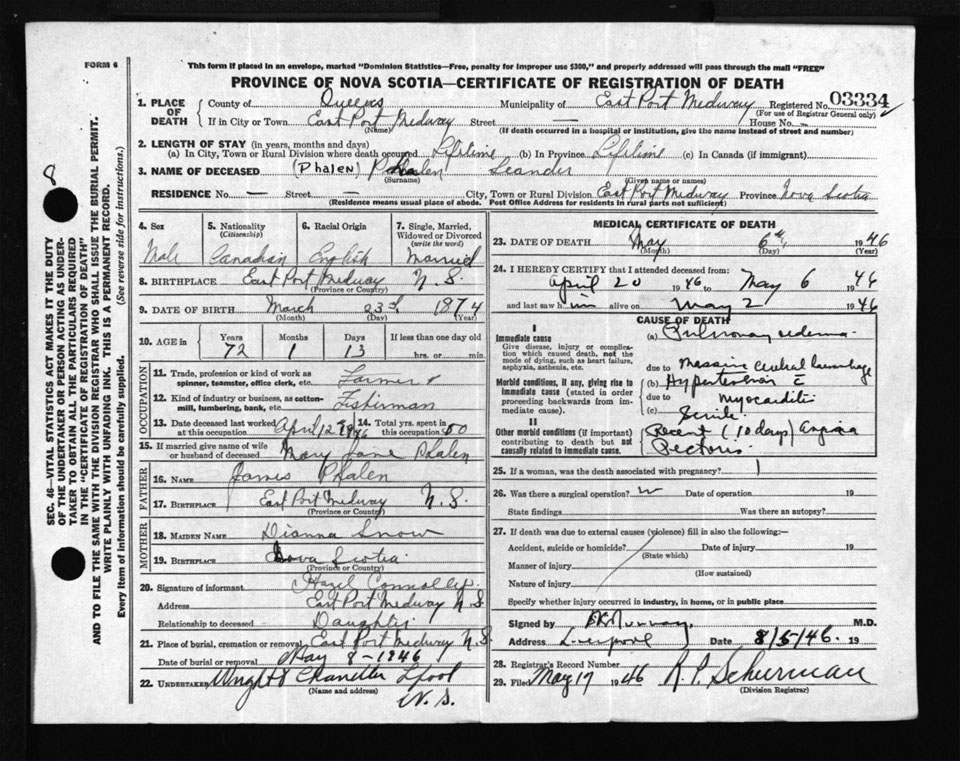 FORM 6
This form if placed in an envelope, marked "Dominion Statistics—Free, penalty for improper use $300," and properly addressed will pass through the mail "FREE"
PROVINCE OF NOVA SCOTIA—CERTIFICATE OF REGISTRATION OF DEATH
1. PLACE OF DEATH { County of Queens Municipality of East Port Medway Registered No. 03334
(For use of Registrar General only)
If in City or Town East Port Medway Street — House No. —
(Name) (If death occurred in a hospital or institution, give the name instead of street and number)
2. LENGTH OF STAY (in years, months and days)
(a) In City, Town or Rural Division where death occurred Lifetime (b) In Province Lifetime (c) In Canada (if immigrant)
3. NAME OF DECEASED (Phalen) Phalen Leander
(Surname) (Given name or names)
RESIDENCE No. — Street — City, Town or Rural Division East Port Medway Province Nova Scotia
(Residence means usual place of abode. Post Office Address for residents in rural parts not sufficient)
4. Sex 5. Nationality (Citizenship) 6. Racial Origin 7. Single, Married, Widowed or Divorced (write the word)
Male Canadian English Married
8. BIRTHPLACE East Port Medway N.S.
(Province or Country)
9. DATE OF BIRTH March 23rd 1874
(Month) (Day) (Year)
10. AGE in { Years Months Days If less than one day old
72 1 13 hrs. or min.
OCCUPATION
11. Trade, profession or kind of work as spinner, teamster, office clerk, etc. Farmer &
12. Kind of industry or business, as cotton-mill, lumbering, bank, etc. Fisherman
13. Date deceased last worked at this occupation April 12 1946 14. Total yrs. spent in this occupation 50
15. If married give name of wife or husband of deceased Mary Jane Phalen
FATHER
16. NAME James Phalen
17. BIRTHPLACE East Port Medway N.S.
(Province or Country)
MOTHER
18. MAIDEN NAME Dianna Snow
19. BIRTHPLACE Nova Scotia
(Province or Country)
20. Signature of informant Hazel Connolly
Address East Port Medway N.S.
Relationship to deceased Daughter
21. Place of burial, cremation or removal East Port Medway N.S.
Date of burial or removal May 8-1946
22. UNDERTAKER Wright & Chandler Lpool
(Name and address)
N.S.
MEDICAL CERTIFICATE OF DEATH
23. DATE OF DEATH May 6th, 1946
(Month) (Day) (Year)
24. I HEREBY CERTIFY that I attended deceased from:
April 20 1946 to May 6 1946
and last saw him alive on May 2 1946
CAUSE OF DEATH
I
Immediate cause (a) Pulmonary edema
Give disease, injury or complication which caused death, not the mode of dying, such as heart failure, asphyxia, asthenia, etc.
due to Massive Cerebral hemorrhage
Morbid conditions, if any, giving rise to immediate cause (stated in order proceeding backwards from immediate cause).
(b) Hypertension c̄
due to myocarditis
(c) Senile
II
Other morbid conditions (if important) contributing to death but not causally related to immediate cause.
Recent (10 days) Angina
Pectoris
25. If a woman, was the death associated with pregnancy?
26. Was there a surgical operation? Date of operation 19
State findings Was there an autopsy?
27. If death was due to external causes (violence) fill in also the following:—
Accident, suicide or homicide? Date of injury 19
(State which)
Manner of injury
(How sustained)
Nature of injury
Specify whether injury occurred in industry, in home, or in public place
Signed by Murray M.D.
Address Liverpool Date 8/5/46. 19
28. Registrar's Record Number
29. Filed May 17 1946 R. P. Schurman
(Division Registrar)
8
SEC. 46—VITAL STATISTICS ACT MAKES IT THE DUTY
OF THE UNDERTAKER OR PERSON ACTING AS UNDER-
TAKER TO OBTAIN ALL THE PARTICULARS REQUIRED
IN THE "CERTIFICATE OF REGISTRATION OF DEATH"
AND TO FILE THE SAME WITH THE DIVISION REGISTRAR WHO SHALL ISSUE THE BURIAL PERMIT.
WRITE PLAINLY WITH UNFADING INK. THIS IS A PERMANENT RECORD.
Every item of information should be carefully supplied. (See reverse side for instructions.)